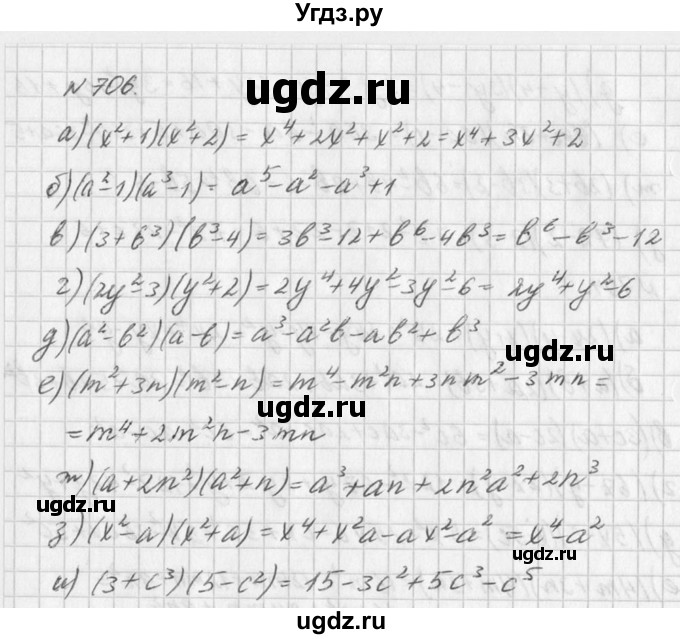 Угдз.ру
№ 706.
ugdz.ru
а) (x²+1)(x²+2) = x⁴+2x²+x²+2 = x⁴+3x²+2
б) (a²-1)(a³-1) = a⁵-a²-a³+1
в) (3+b³)(b³-4) = 3b³-12+b⁶-4b³ = b⁶-b³-12
г) (2y²-3)(y²+2) = 2y⁴+4y²-3y²-6 = 2y⁴+y²-6
д) (a²-b²)(a-b) = a³-a²b-ab²+b³
ugdz.ru
е) (m²+3n)(m²-n) = m⁴-m²n+3nm²-3mn =
ugdz.ru
= m⁴+2m²n-3mn
ж) (a+2n²)(a²+n) = a³+an+2n²a²+2n³
ugdz.ru
з) (x²-a)(x²+a) = x⁴+x²a-ax²-a² = x⁴-a²
ugdz.ru
и) (3+c³)(5-c²) = 15-3c²+5c³-c⁵
ugdz.ru